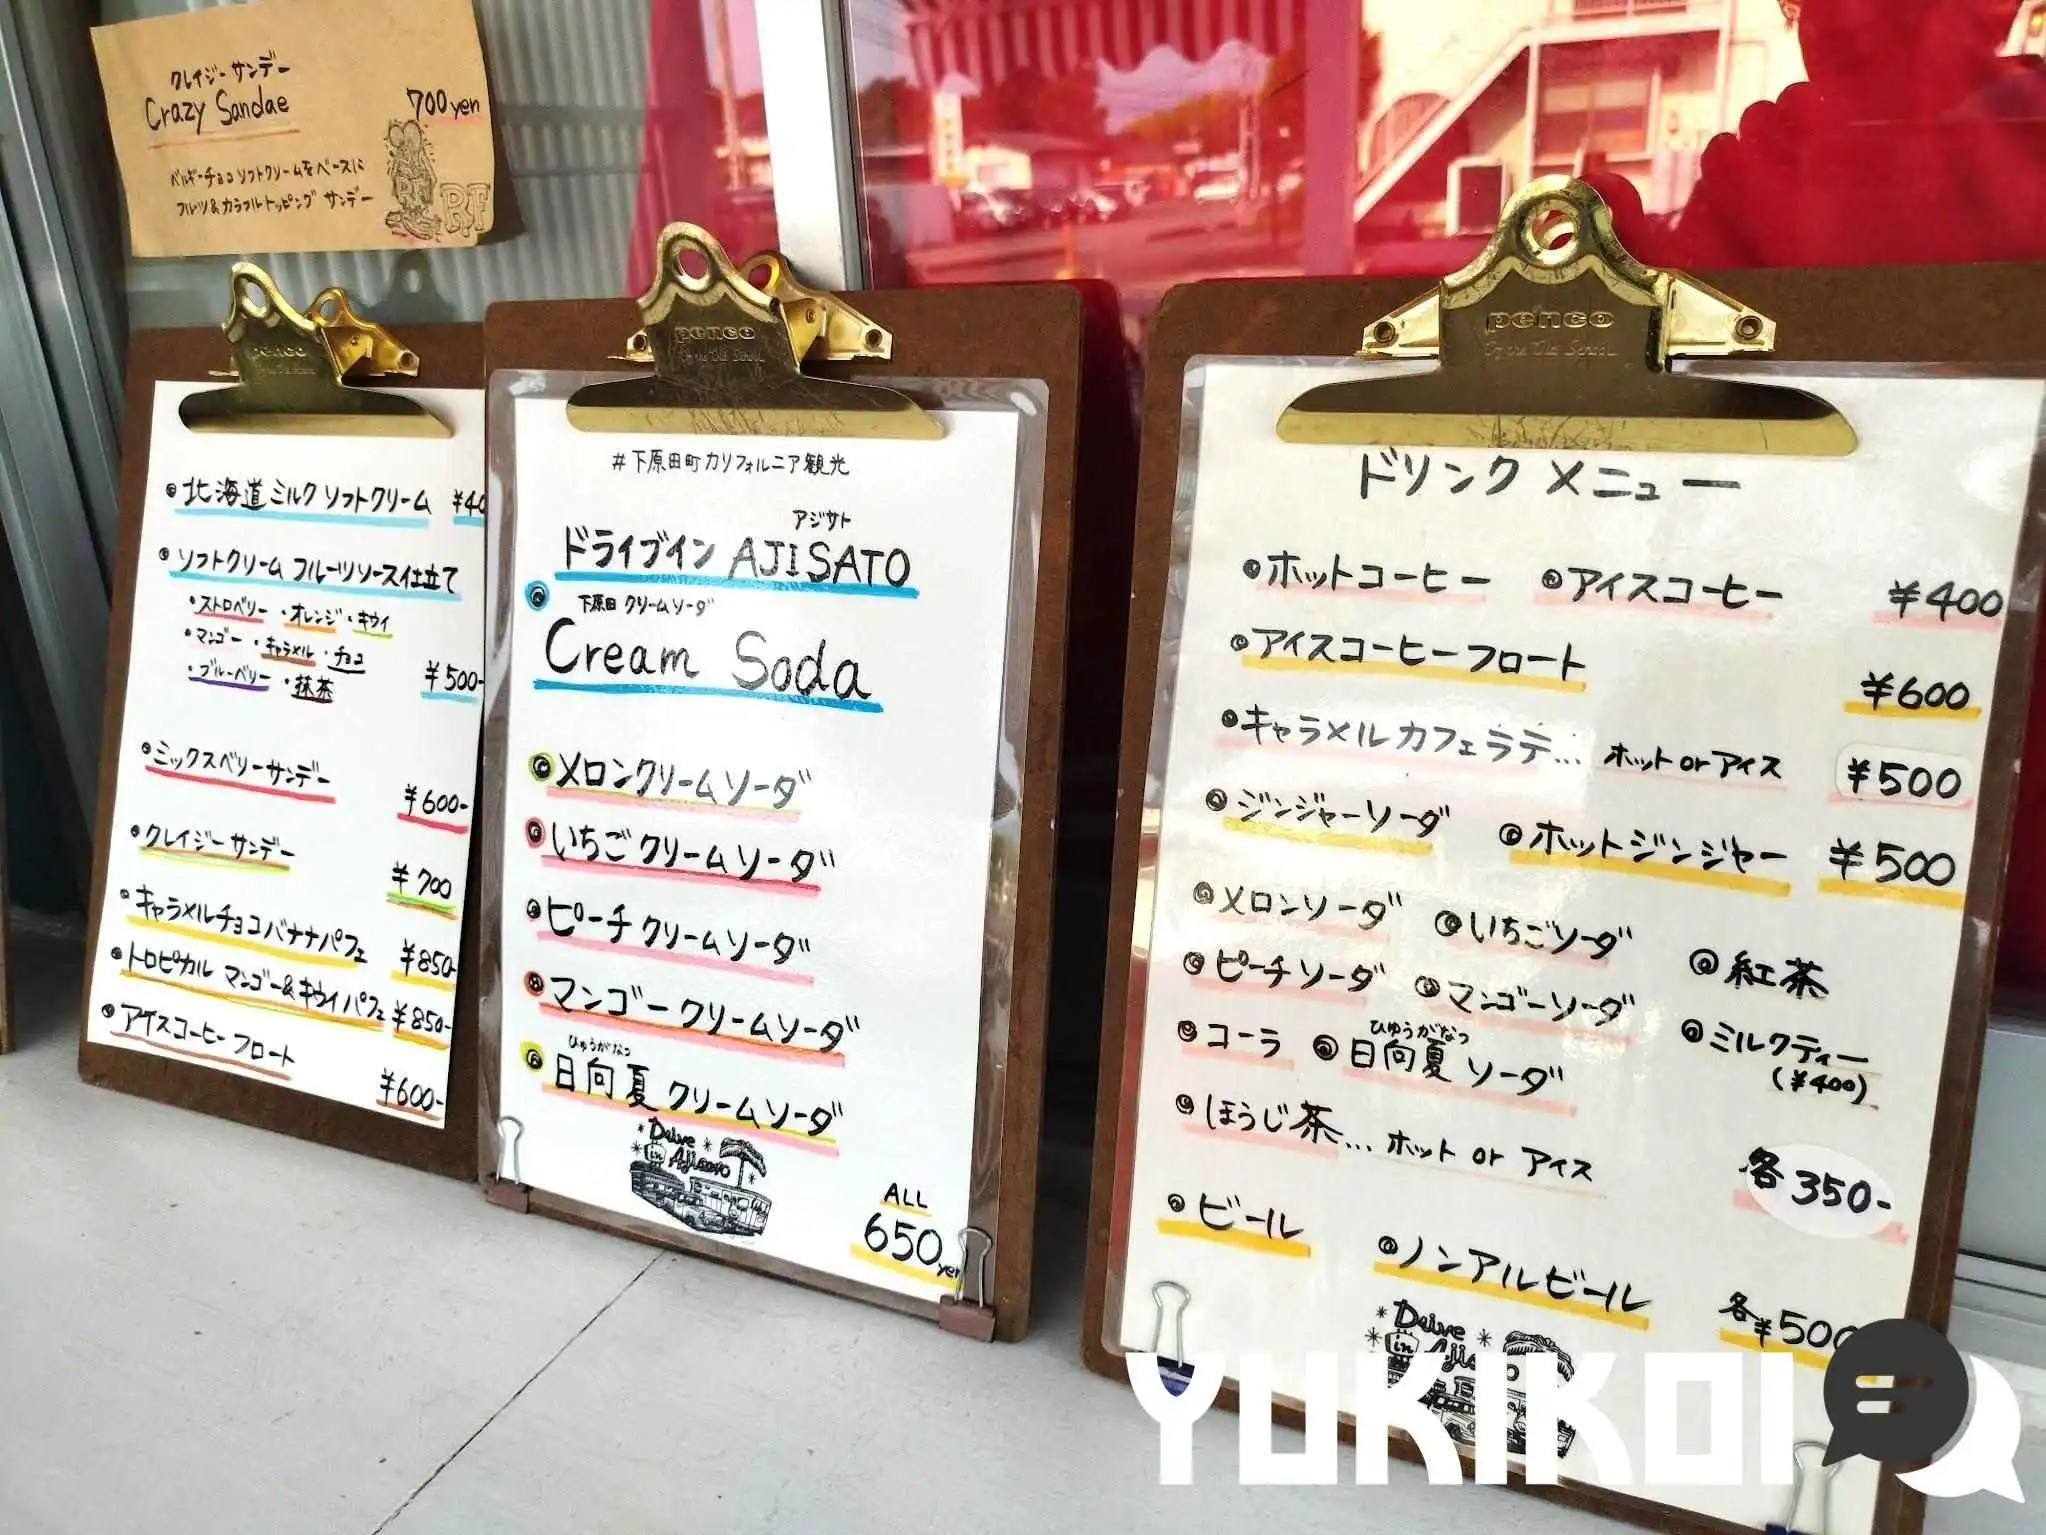 クレイジーサンデー
Crazy Sandae
700yen
ベルギーチョコソフトクリームをベースに
フルーツ&カラフルトッピングサンデー
R.F
penco
北海道ミルクソフトクリーム ¥40
ソフトクリーム フルーツソース仕立て
・ストロベリー ・オレンジ ・キウイ
・マンゴー ・キャラメル ・チョコ
・ブルーベリー ・抹茶 ¥500-
ミックスベリーサンデー ¥600-
クレイジーサンデー ¥700
キャラメルチョコバナナパフェ ¥850-
トロピカル マンゴー&キウイパフェ ¥850-
アイスコーヒーフロート ¥600-
penco
#下原田町カリフォルニア観光
アジサト
ドライブイン AJISATO
下原田 クリームソーダ
Cream Soda
メロンクリームソーダ
いちごクリームソーダ
ピーチクリームソーダ
マンゴークリームソーダ
ひゅうがなつ
日向夏クリームソーダ
Drive
in Ajisato
ALL
650yen
penco
ドリンクメニュー
ホットコーヒー アイスコーヒー ¥400
アイスコーヒーフロート ¥600
キャラメルカフェラテ... ホット or アイス ¥500
ジンジャーソーダ ホットジンジャー ¥500
メロンソーダ いちごソーダ 紅茶
ピーチソーダ マンゴーソーダ ミルクティー
(¥400)
ひゅうがなつ
コーラ 日向夏ソーダ
ほうじ茶... ホット or アイス 各350-
ビール ノンアルビール 各¥500
Drive
in Ajisato
YUKIKOI